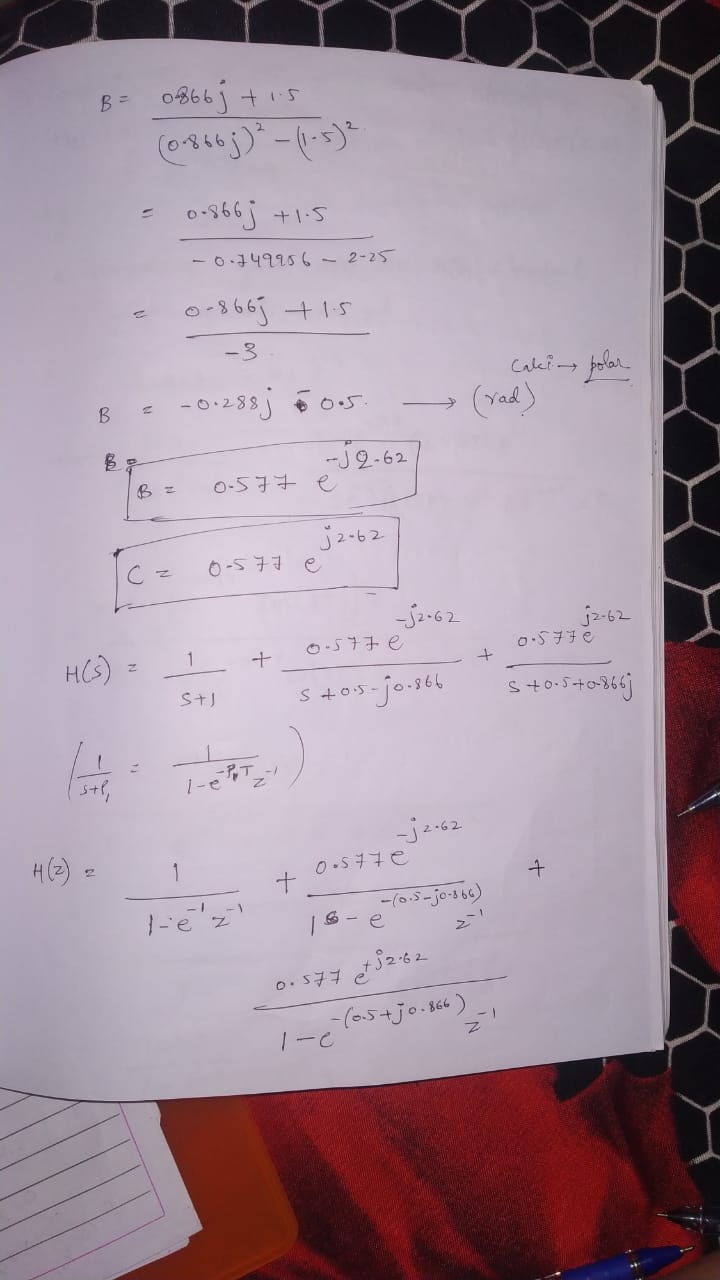 B = (0.866j + 1.5) / ((0.866j)² - (1.5)²)
= (0.866j + 1.5) / (-0.749956 - 2.25)
= (0.866j + 1.5) / (-3)
B = -0.288j - 0.5. → (rad) Calci → polar
B =
B = 0.577 e^(-j2.62)
C = 0.577 e^(j2.62)
H(s) = 1/(s+1) + 0.577e^(-j2.62)/(s+0.5-j0.866) + 0.577e^(j2.62)/(s+0.5+0.866j)
(1/(s+P₁) = 1/(1-e^(-P₁T) z⁻¹))
H(z) = 1/(1-e⁻¹z⁻¹) + 0.577e^(-j2.62)/(1-e^(-(0.5-j0.866)) z⁻¹) +
0.577 e^(+j2.62)/(1-e^(-(0.5+j0.866)) z⁻¹)